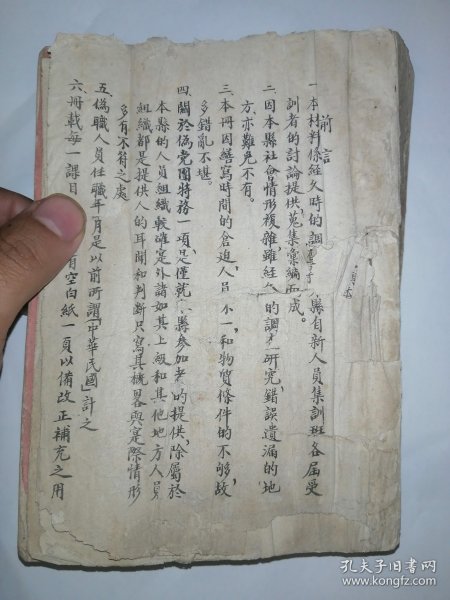 前言
一本材料係經久時的調查
縣自新人員集訓班各屆受
訓者的討論提供蒐集彙編而成。
二、因本縣社會情形複雜、雖經
的調 研究、錯誤遺漏的地
方、亦難免不有。
三、本冊因繕寫時間的倉迫、人員不一、和物質條件的不够故、
多錯亂不堪
四、關於偽党團特務一項、是僅就 縣参加者的提供、除屬於
本縣的人員組織較確定外、諸如其上級和其他地方人員
組織都是提供人的耳聞和判断只寫其概畧與寔際情形
多有不符之處
五、偽職人員任職年月是以前所謂「中華民國」計之
六、冊載每一課目 有空白紙一頁以備改正補充之用
孔夫子旧书网
www.kongfz.com